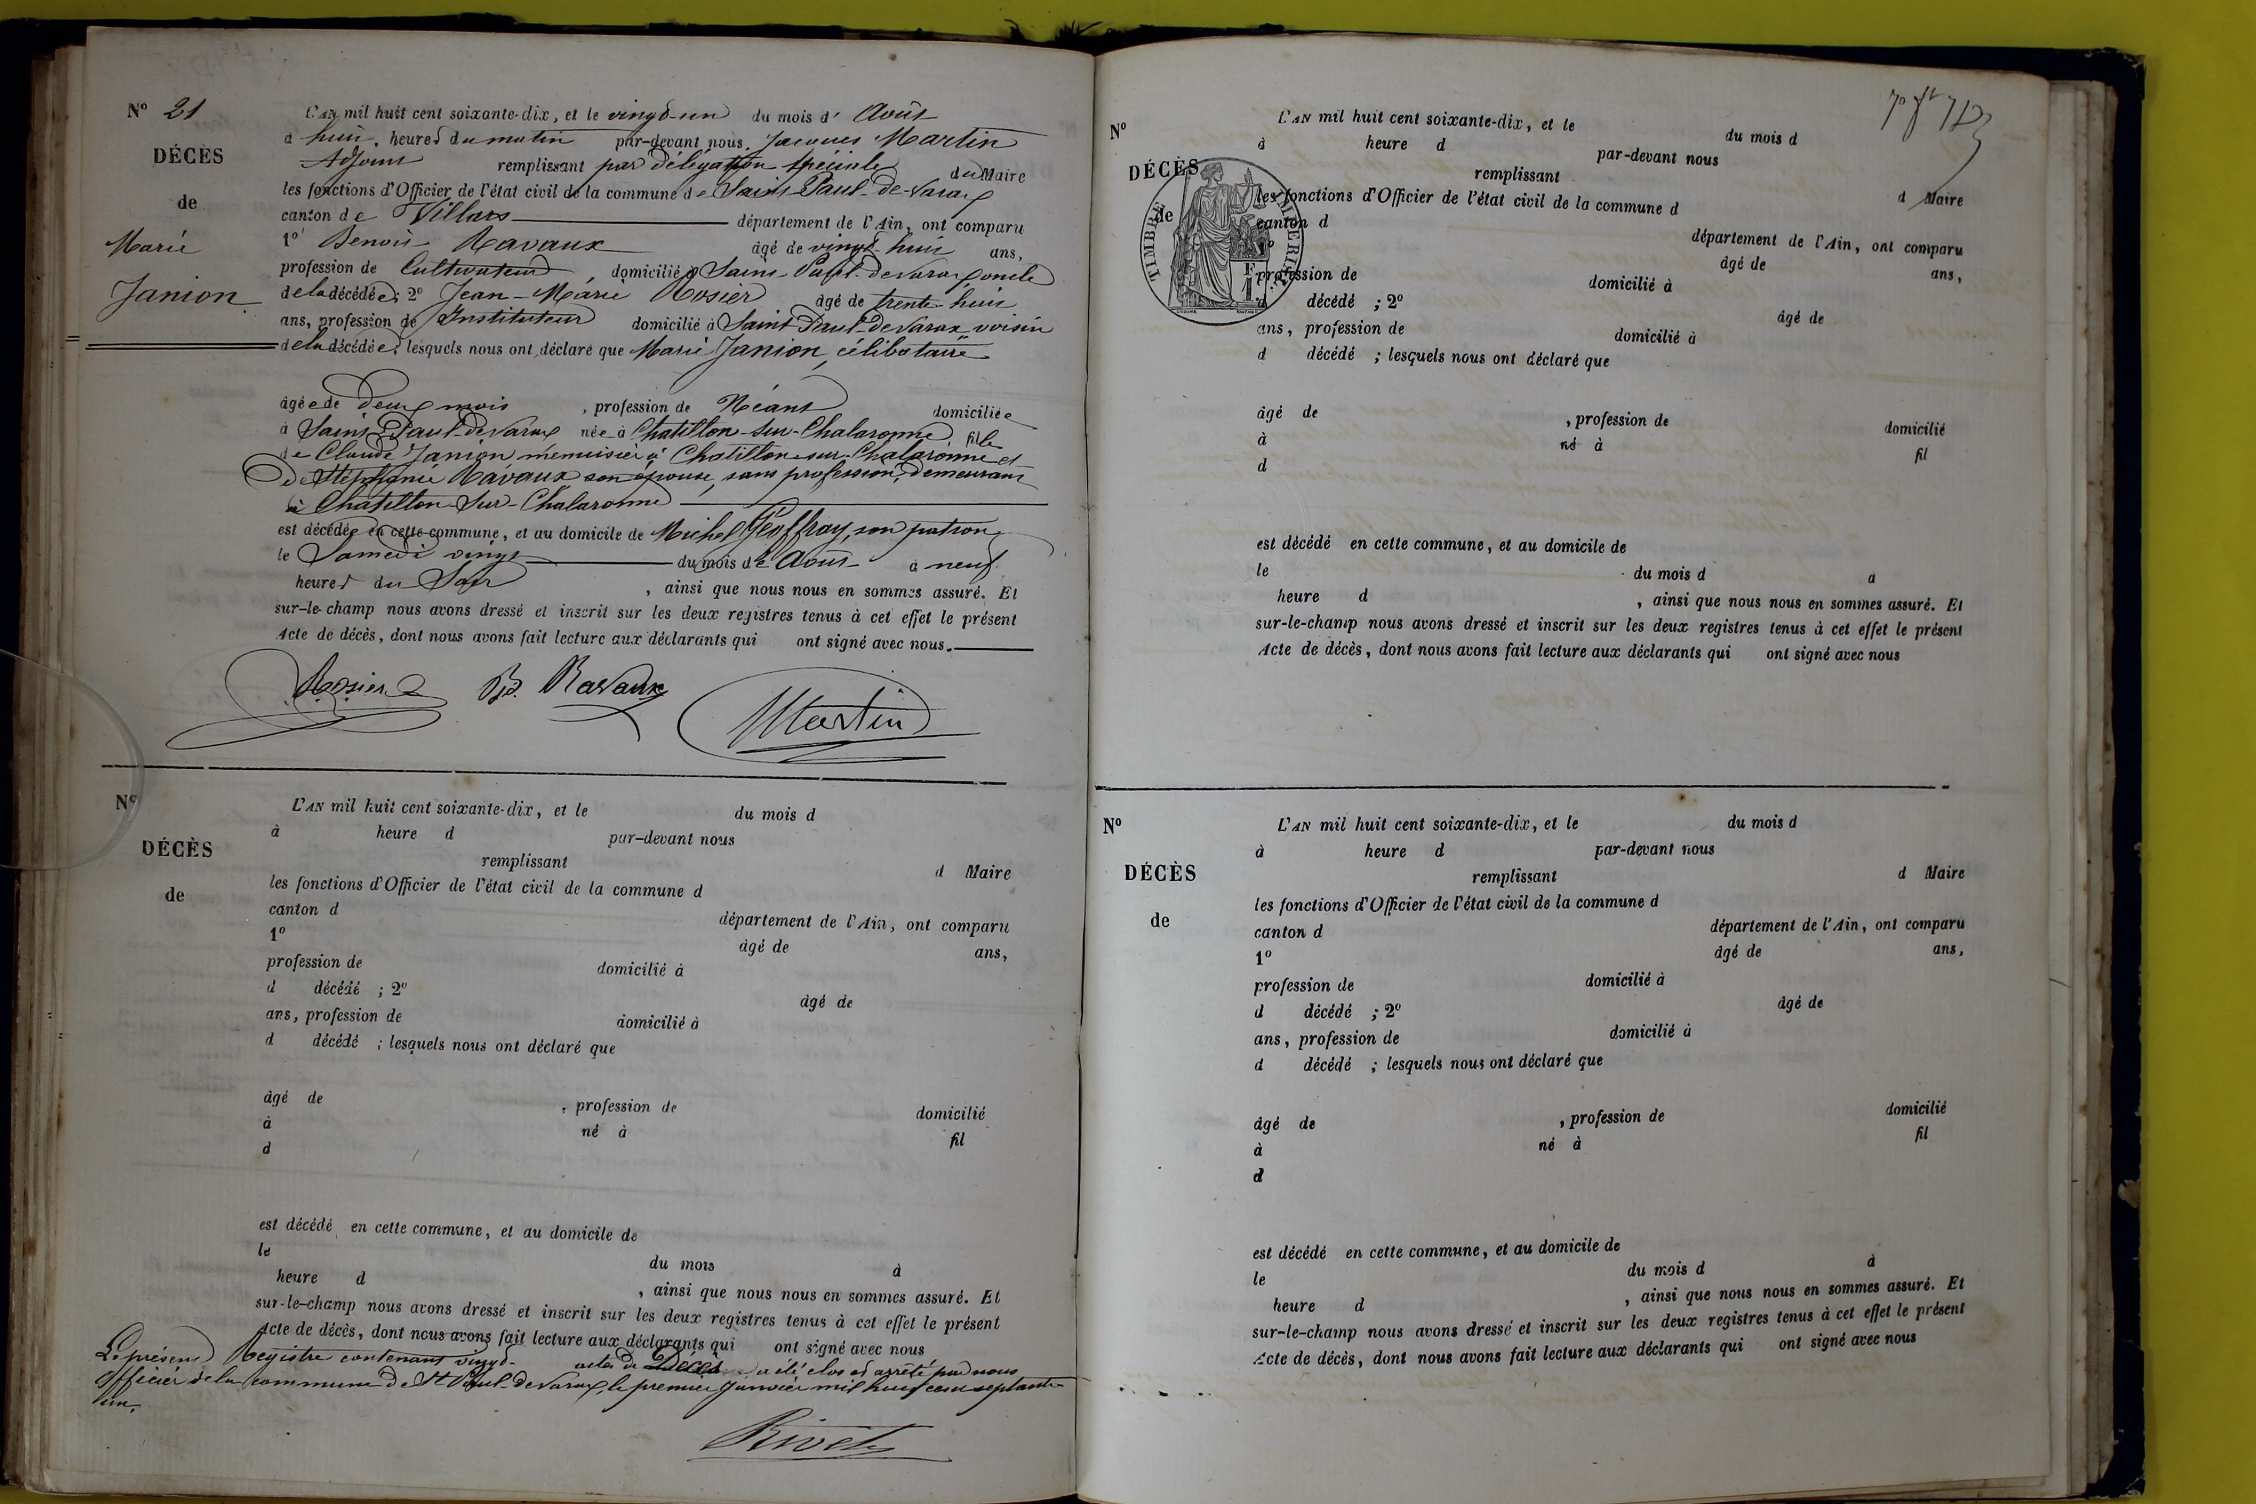 N° 21
DÉCÈS
de
Marie
Janion
L'AN mil huit cent soixante-dix, et le vingt-un du mois d' Août
à huit heures du matin par-devant nous Jacques Martin
Adjoint remplissant par délégation spéciale du Maire
les fonctions d'Officier de l'état civil de la commune de Saint-Paul-de-Varax
canton de Villars département de l'Ain, ont comparu
1° Benoit Ravaux âgé de vingt-huit ans,
profession de Cultivateur, domicilié à Saint-Paul-de-Varax, oncle
de la décédée; 2° Jean-Marie Rosier âgé de trente-huit
ans, profession de Instituteur domicilié à Saint-Paul-de-Varax voisin
de la décédée; lesquels nous ont déclaré que Marie Janion, célibataire
âgée de deux mois, profession de Néant domiciliée
à Saint-Paul-de-Varax née à Chatillon-sur-Chalaronne, fille
de Claude Janion menuisier à Chatillon-sur-Chalaronne et
de Stéphanie Ravaux son épouse, sans profession, demeurant
à Chatillon-sur-Chalaronne
est décédée en cette commune, et au domicile de Michel Geoffray, son patron
le Samedi vingt du mois de Août à neuf
heures du Soir, ainsi que nous nous en sommes assuré. Et
sur-le-champ nous avons dressé et inscrit sur les deux registres tenus à cet effet le présent
Acte de décès, dont nous avons fait lecture aux déclarants qui ont signé avec nous.
Rosier B. Ravaux
Martin
N°
DÉCÈS
de
L'AN mil huit cent soixante-dix, et le du mois d
à heure d par-devant nous
remplissant d Maire
les fonctions d'Officier de l'état civil de la commune d
canton d département de l'Ain, ont comparu
1° âgé de ans,
profession de domicilié à
d décédé ; 2° âgé de
ans, profession de domicilié à
d décédé ; lesquels nous ont déclaré que
âgé de , profession de domicilié
à né à fil
d
est décédé en cette commune, et au domicile de
le du mois à
heure d , ainsi que nous nous en sommes assuré. Et
sur-le-champ nous avons dressé et inscrit sur les deux registres tenus à cet effet le présent
Acte de décès, dont nous avons fait lecture aux déclarants qui ont signé avec nous
Le présent Registre contenant vingt- actes de Décès a été clos et arrêté par nous
officier de la commune de St Paul-de-Varax, le premier Janvier mil huit cent septante
un.
Rivet
N°
DÉCÈS
de
TIMBRE IMPÉRIAL
L'AN mil huit cent soixante-dix, et le du mois d
à heure d par-devant nous
remplissant d Maire
les fonctions d'Officier de l'état civil de la commune d
canton d département de l'Ain, ont comparu
1° âgé de ans,
profession de domicilié à
d décédé ; 2° âgé de
ans, profession de domicilié à
d décédé ; lesquels nous ont déclaré que
âgé de , profession de domicilié
à né à fil
d
est décédé en cette commune, et au domicile de
le du mois d à
heure d , ainsi que nous nous en sommes assuré. Et
sur-le-champ nous avons dressé et inscrit sur les deux registres tenus à cet effet le présent
Acte de décès, dont nous avons fait lecture aux déclarants qui ont signé avec nous
N°
DÉCÈS
de
L'AN mil huit cent soixante-dix, et le du mois d
à heure d par-devant nous
remplissant d Maire
les fonctions d'Officier de l'état civil de la commune d
canton d département de l'Ain, ont comparu
1° âgé de ans,
profession de domicilié à
d décédé ; 2° âgé de
ans, profession de domicilié à
d décédé ; lesquels nous ont déclaré que
âgé de , profession de domicilié
à né à fil
d
est décédé en cette commune, et au domicile de
le du mois d à
heure d , ainsi que nous nous en sommes assuré. Et
sur-le-champ nous avons dressé et inscrit sur les deux registres tenus à cet effet le présent
Acte de décès, dont nous avons fait lecture aux déclarants qui ont signé avec nous